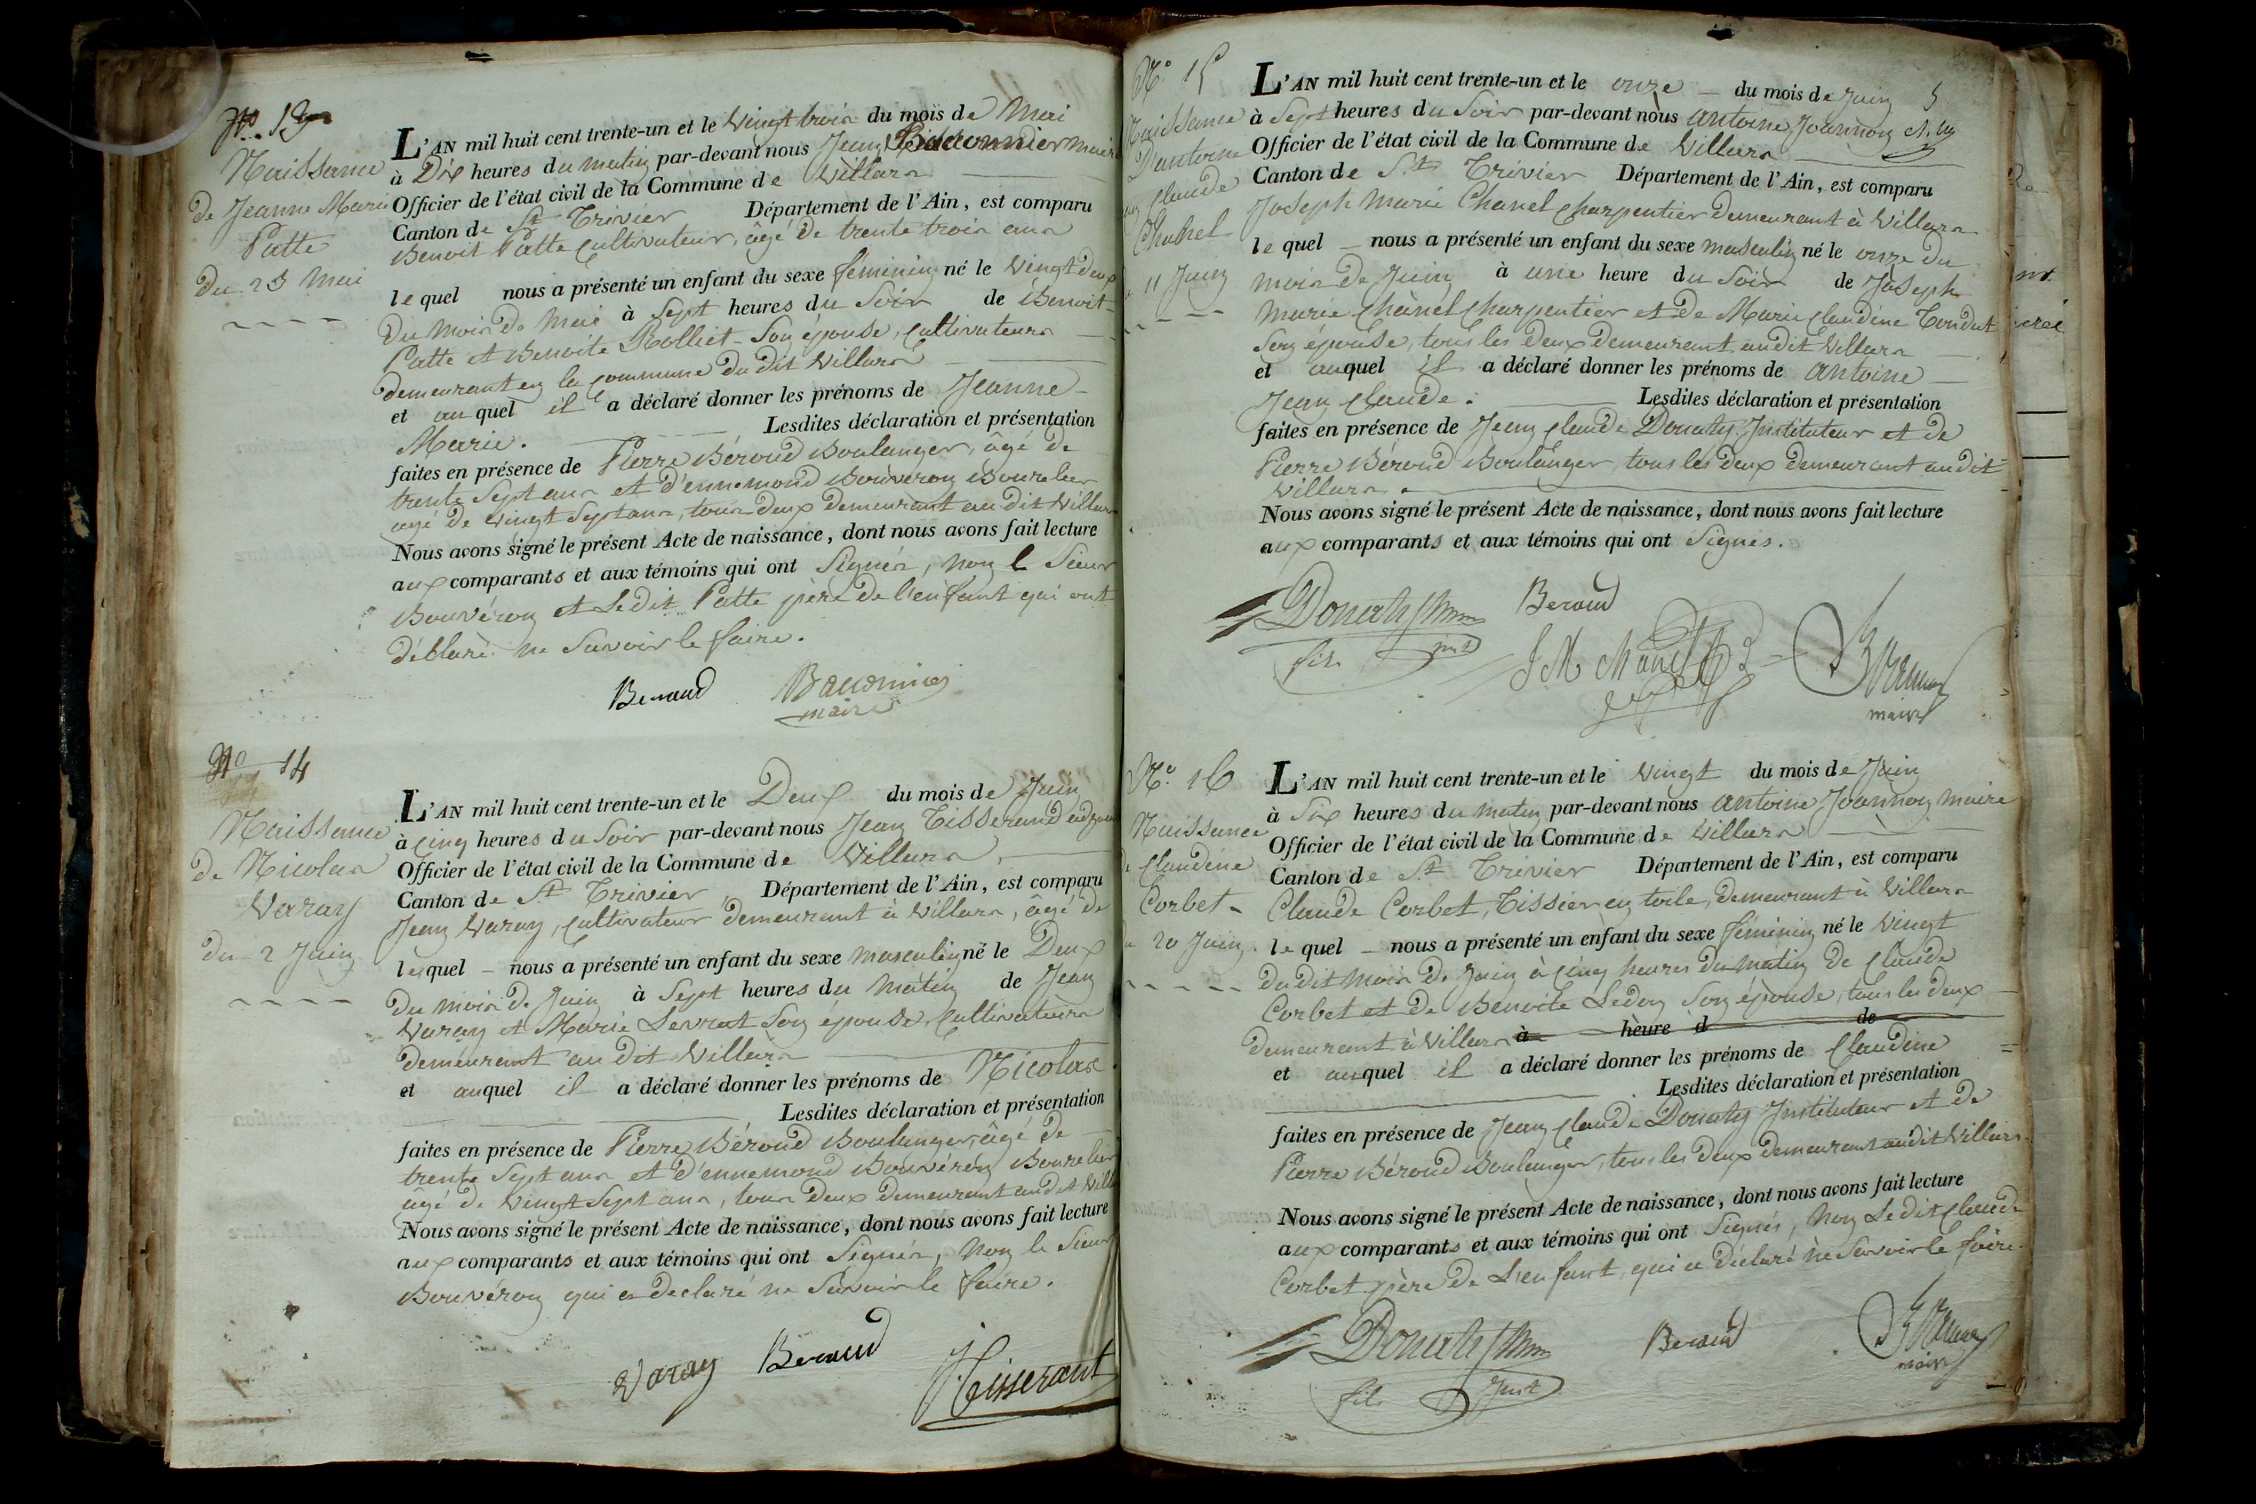 N° 13
Naissance
de Jeanne Marie
Patte
du 23 Mai
L'AN mil huit cent trente-un et le vingt trois du mois de Mai
à Dix heures du matin par-devant nous Jean Bacconnier maire
Officier de l'état civil de la Commune de Villars
Canton de St Trivier Département de l'Ain, est comparu
Benoit Patte Cultivateur, âgé de trente trois ans
lequel nous a présenté un enfant du sexe féminin né le vingt deux
du mois de Mai à Sept heures du Soir de Benoit
Patte et Benoite Rolliet Son épouse, Cultivateurs
demeurant en la Commune du dit Villars
et auquel il a déclaré donner les prénoms de Jeanne
Marie. Lesdites déclaration et présentation
faites en présence de Pierre Béroud Boulanger, âgé de
trente Sept ans et d'ennemond Bouvéron Bourelier
agé de vingt Sept ans, tous deux demeurant au dit Villars
Nous avons signé le présent Acte de naissance, dont nous avons fait lecture
aux comparants et aux témoins qui ont Signés, non l Sieur
Bouvéron et Ledit Patte père de l'enfant qui ont
déclaré ne Savoir le faire.
Beroud Bacconnier
maire
N° 14
Naissance
de Nicolas
Varay
du 2 Juin
L'AN mil huit cent trente-un et le Deux du mois de Juin
à Cinq heures du Soir par-devant nous Jean Tisserand adjoint
Officier de l'état civil de la Commune de Villars,
Canton de St Trivier Département de l'Ain, est comparu
Jean Varay, Cultivateur demeurant à Villars, âgé de
lequel nous a présenté un enfant du sexe masculin né le Deux
du mois de Juin à Sept heures du Matin de Jean
Varay et Marie Servrat Son épouse, Cultivateurs
demeurant au dit Villars
et auquel il a déclaré donner les prénoms de Nicolas
Lesdites déclaration et présentation
faites en présence de Pierre Béroud Boulanger, âgé de
trente Sept ans et d'ennemond Bouvéron Bourelier
agé de vingt Sept ans, tous deux demeurant au dit Vill
Nous avons signé le présent Acte de naissance, dont nous avons fait lecture
aux comparants et aux témoins qui ont Signés, Non le Sieur
Bouvéron qui a déclaré ne Savoir le faire.
Varay Beroud Tisserant
N° 15
Naissance
D'antoine
Jean Claude
Chanel
11 Juin
5
L'AN mil huit cent trente-un et le onze du mois de Juin
à Sept heures du Soir par-devant nous antoine Joannon
Officier de l'état civil de la Commune de Villars
Canton de St Trivier Département de l'Ain, est comparu
Joseph Marie Chanel Charpentier demeurant à Villars
lequel nous a présenté un enfant du sexe masculin né le onze du
mois de Juin à une heure du Soir de Joseph
Marie Chanel Charpentier et de Marie Claudine Tondut
Son épouse, tous les deux demeurant audit Villars
et auquel il a déclaré donner les prénoms de antoine
Jean Claude. Lesdites déclaration et présentation
faites en présence de Jean Claude Donaty Instituteur et de
Pierre Béroud Boulanger, tous les deux demeurant audit
Villars.
Nous avons signé le présent Acte de naissance, dont nous avons fait lecture
aux comparants et aux témoins qui ont Signés.
Donaty Beroud
fils inst
J M Chanel
maire
N° 16
Naissance
de Claudine
Corbet
20 Juin
L'AN mil huit cent trente-un et le vingt du mois de Juin
à Six heures du matin par-devant nous antoine Joannon maire
Officier de l'état civil de la Commune de Villars
Canton de St Trivier Département de l'Ain, est comparu
Claude Corbet, Tissier en toile, demeurant à Villars
lequel nous a présenté un enfant du sexe féminin né le vingt
du dit mois de Juin à Cinq heures du matin de Claude
Corbet et de Benoite Ledon Son épouse, tous les deux
demeurant à Villars à heure d de
et auquel il a déclaré donner les prénoms de Claudine
Lesdites déclaration et présentation
faites en présence de Jean Claude Donaty Instituteur et de
Pierre Béroud Boulanger, tous les deux demeurant audit Villars
Nous avons signé le présent Acte de naissance, dont nous avons fait lecture
aux comparants et aux témoins qui ont Signés, Non Ledit Claude
Corbet père de L'enfant, qui a déclaré ne Savoir le faire.
Donaty Beroud
fils Inst
maire